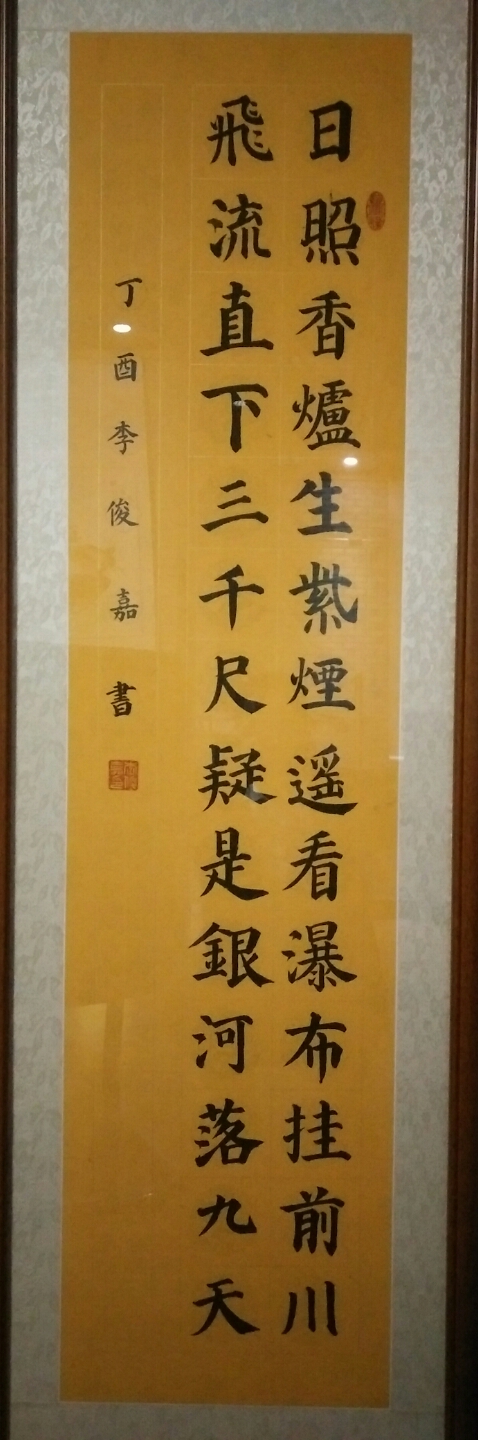 日照香爐生紫煙遥看瀑布挂前川
飛流直下三千尺疑是銀河落九天
丁酉李俊嘉書